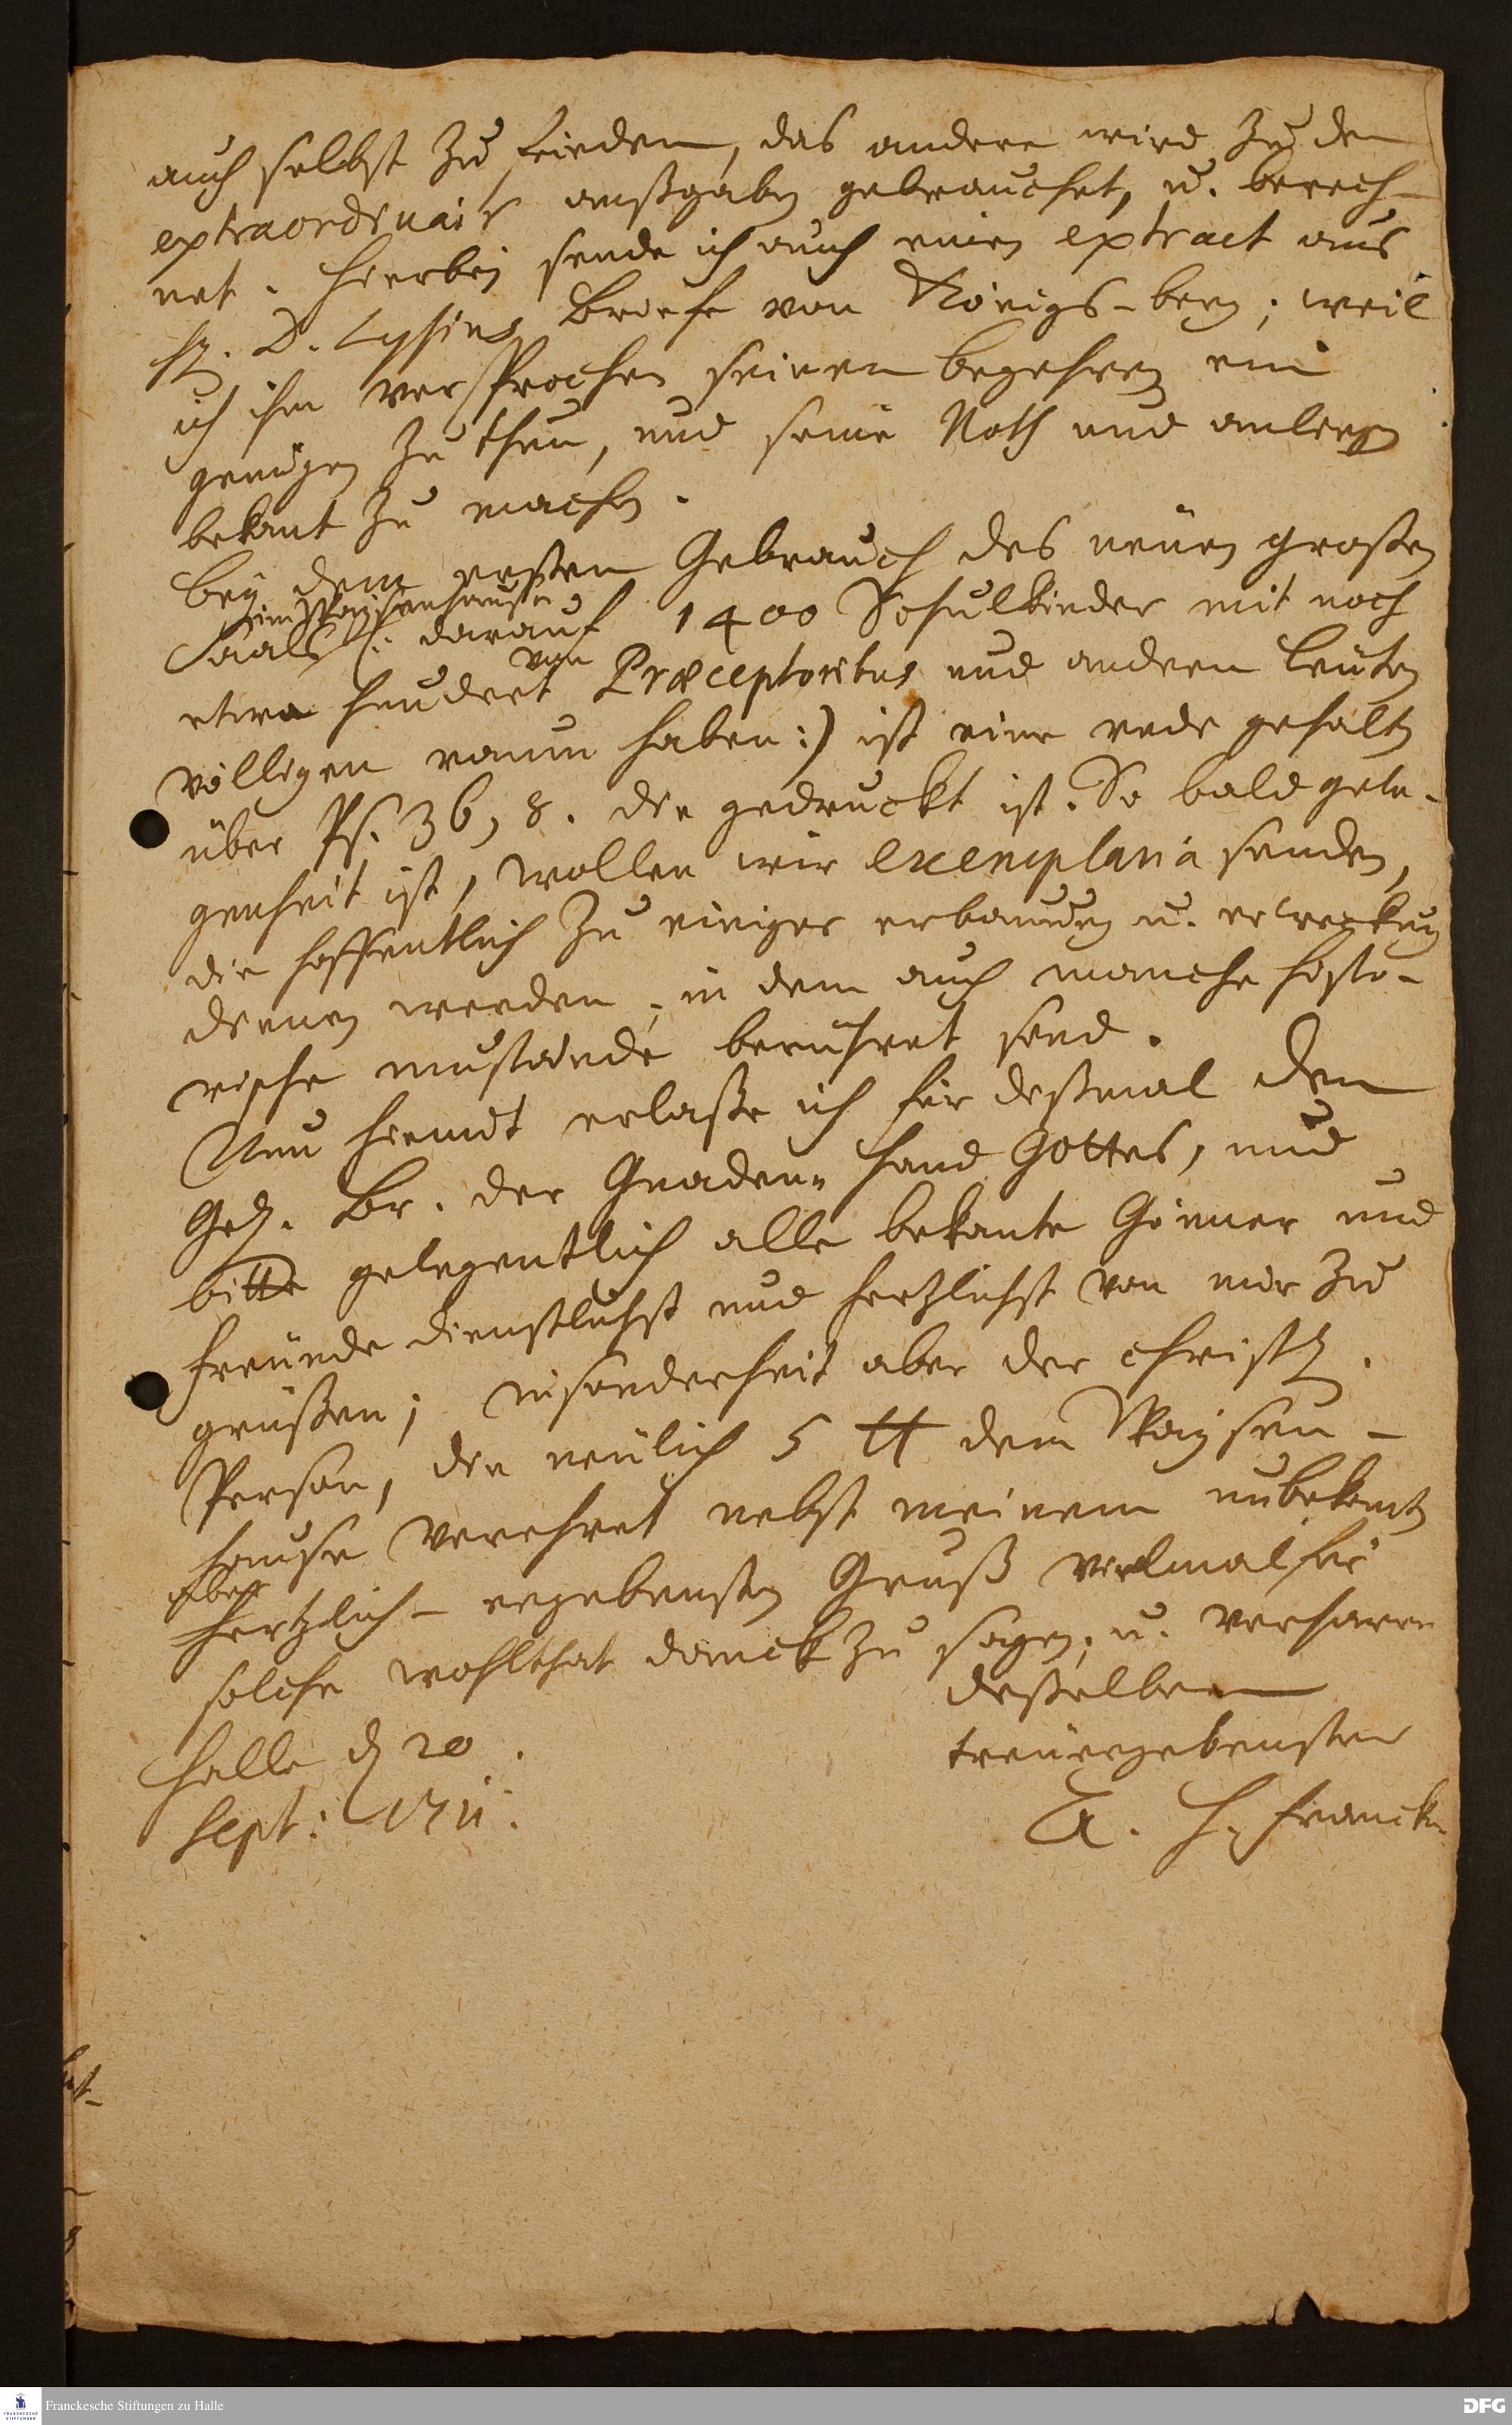 auch selbst zu frieden, das andere wird zu den
extraordinair außgaben gebrauchet, u. berech-
net. hierbey sende ich auch einen extract aus
H. D. Lysius Briefe von Königs-berg; weil
ich ihm versprochen seinem begehren ein
genügen zu thun, und seine Noth und anliegen
bekant zu machen.
Bey dem ersten Gebrauch des neuen großen
im Waysenhause
Saals (: darauf 1400 Schulkinder mit noch
etwa hundert von Præceptoribus und andern leuten
völligen raum haben :) ist eine rede gehalten
über Ps. 36, 8. die gedruckt ist. So bald gele-
genheit ist, wollen wir exemplaria senden,
die hoffentlich zu einiger erbauung u. erweckung
dienen werden, in dem auch manche histo-
rische umstände berühret sind.
Nun hiemit erlaße ich für dißmal den
Gel. Br. der Gnaden-hand Gottes, und
bitte gelegentlich alle bekante Gönner und
freunde dienstlichst und hertzlichst von mir zu
grüßen; insonderheit aber der christl.
Person, die neulich 5 tt dem Waysen-
hause verehret nebst meinem unbekanten
aber
hertzlich-ergebensten Gruß vielmal für
solche wohlthat danck zu sagen, u. verharre
deßelben
Halle d 20.
treuergebenster
Sept: 1711.
A. H. Francke
Franckesche Stiftungen zu Halle
DFG